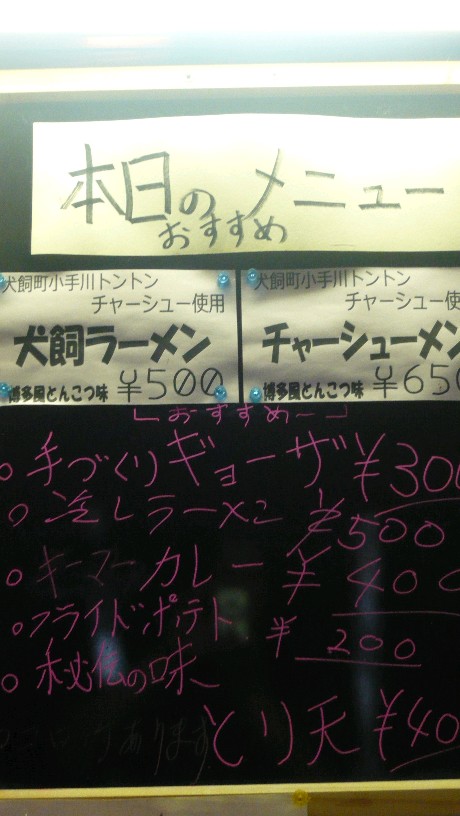 本日のメニュー
おすすめ
犬飼町小手川トントン
チャーシュー使用
犬飼ラーメン
博多風とんこつ味 ¥500
犬飼町小手川トントン
チャーシュー使
チャーシューメン
博多風とんこつ味 ¥650
おすすめ
手づくりギョーザ ¥300
冷しラーメン ¥500
キーマーカレー ¥400
フライドポテト ¥200
秘伝の味
とり天 ¥40
あります